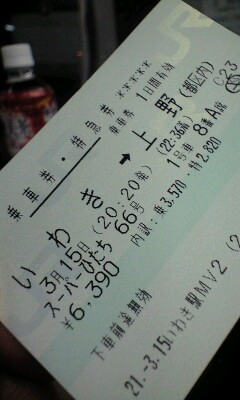 乗車券・特急券
乗車券 1日間有効
*****
いわき → 上野(都区内)
3月15日(20:20発)(22:36着)
スーパーひたち66号 1号車 8番A席
¥6,390 内訳:乗3,570・特2,820
下車前途無効
21.-3.15いわき駅MV2